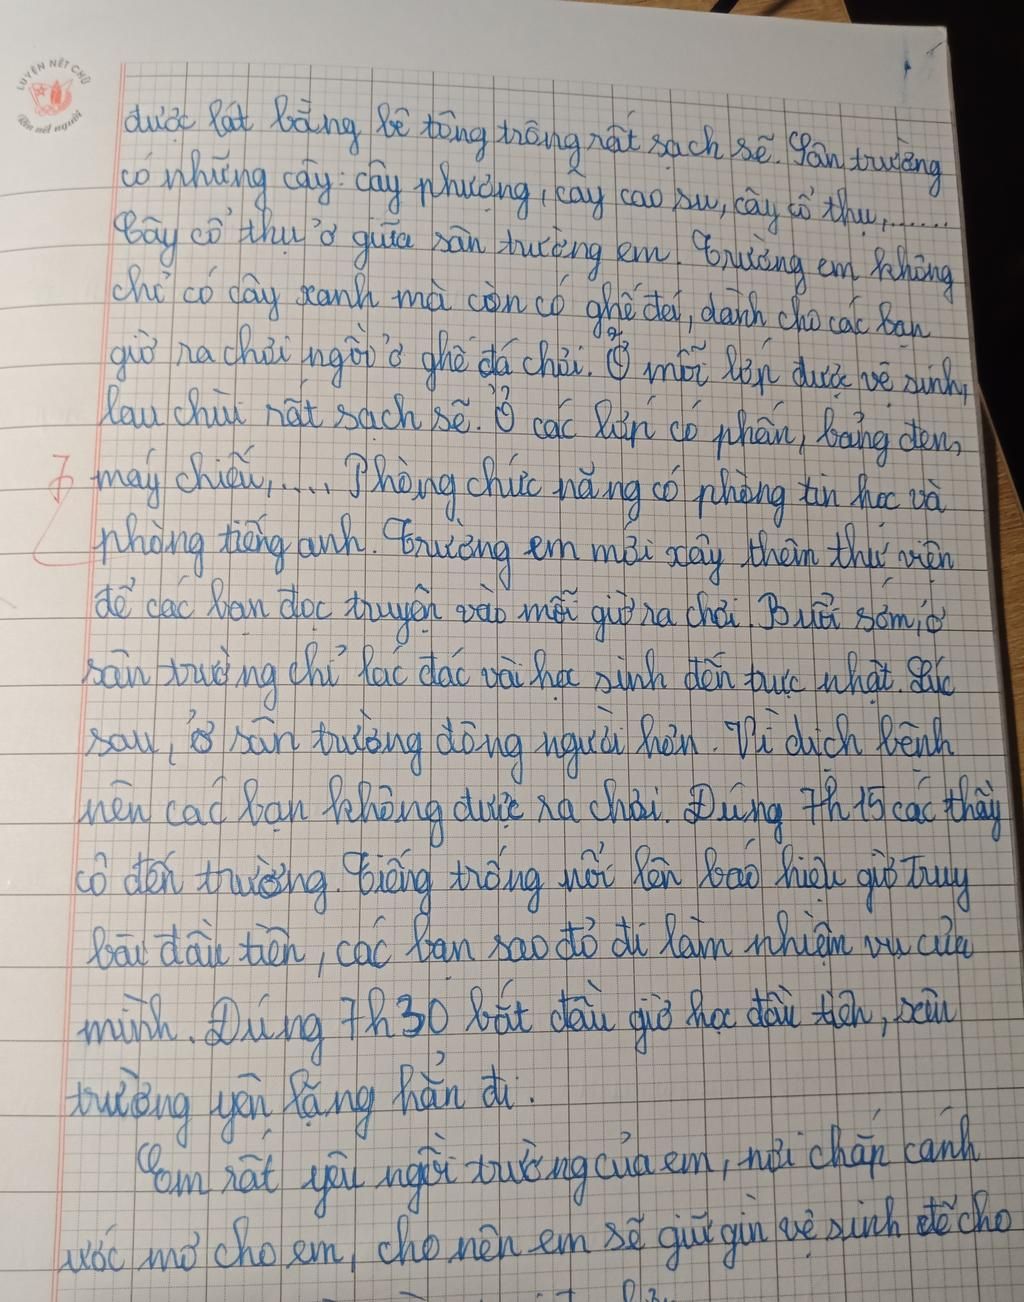 LUYỆN NẾT CHỮ
Rèn nết người
được lát bằng bê tông trông rất sạch sẽ. Sân trường
có những cây: cây phượng, cây cao su, cây cổ thụ,......
Cây cổ thụ ở giữa sân trường em. Trường em không
chỉ có cây xanh mà còn có ghế đá, dành cho các bạn
giờ ra chơi ngồi ở ghế đá chơi. Ở mỗi lớp được vệ sinh,
lau chùi rất sạch sẽ. Ở các lớp có phấn, bảng đen,
máy chiếu,.... Phòng chức năng có phòng tin học và
phòng tiếng anh. Trường em mới xây thêm thư viện
để các bạn đọc truyện vào mỗi giờ ra chơi. Buổi sớm, ở
sân trường chỉ lác đác vài học sinh đến trực nhật. Lúc
sau, ở sân trường đông người hơn. Vì dịch bệnh
nên các bạn không được ra chơi. Đúng 7h15 các thầy
cô đến trường. Tiếng trống nổi lên báo hiệu giờ Truy
bài đầu tiên, các bạn sao đỏ đi làm nhiệm vụ của
mình. Đúng 7h30 bắt đầu giờ học đầu tiên, sân
trường yên lặng hẳn đi.
Em rất yêu ngôi trường của em, nơi chắp cánh
ước mơ cho em, cho nên em sẽ giữ gìn vệ sinh để cho